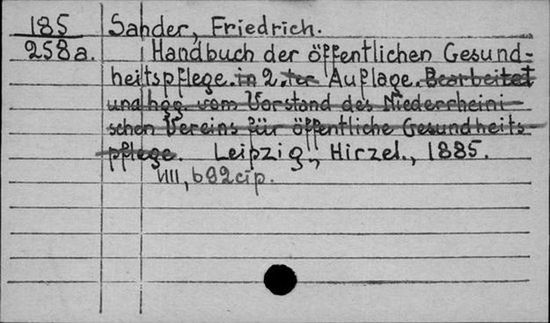 185 Sander, Friedrich.
258a. Handbuch der öffentlichen Gesund-
heitspflege. in 2. ter Auflage. Bearbeitet
und hgg. vom Vorstand des Niederrheini-
schen Vereins für öffentliche Gesundheits-
pflege. Leipzig, Hirzel., 1885.
VIII, 682